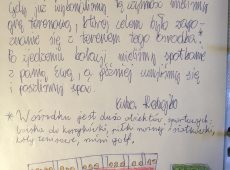 gdy już wypełniliśmy tę zajmowo mieliśmy
grę terenową, której celem było zapo-
znanie się z terenem tego ośrodka.*
Po zjedzeniu kolacji, mieliśmy spotkanie
z panią Ewą, a później umyliśmy się
i poszliśmy spać.
* W ośrodku jest dużo obiektów sportowych:
boisko do koszykówki, piłki nożnej i siatkówki,
korty tenisowe, mini golf,